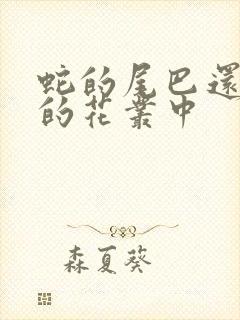 蛇的尾巴還
的花叢中
森夏葵